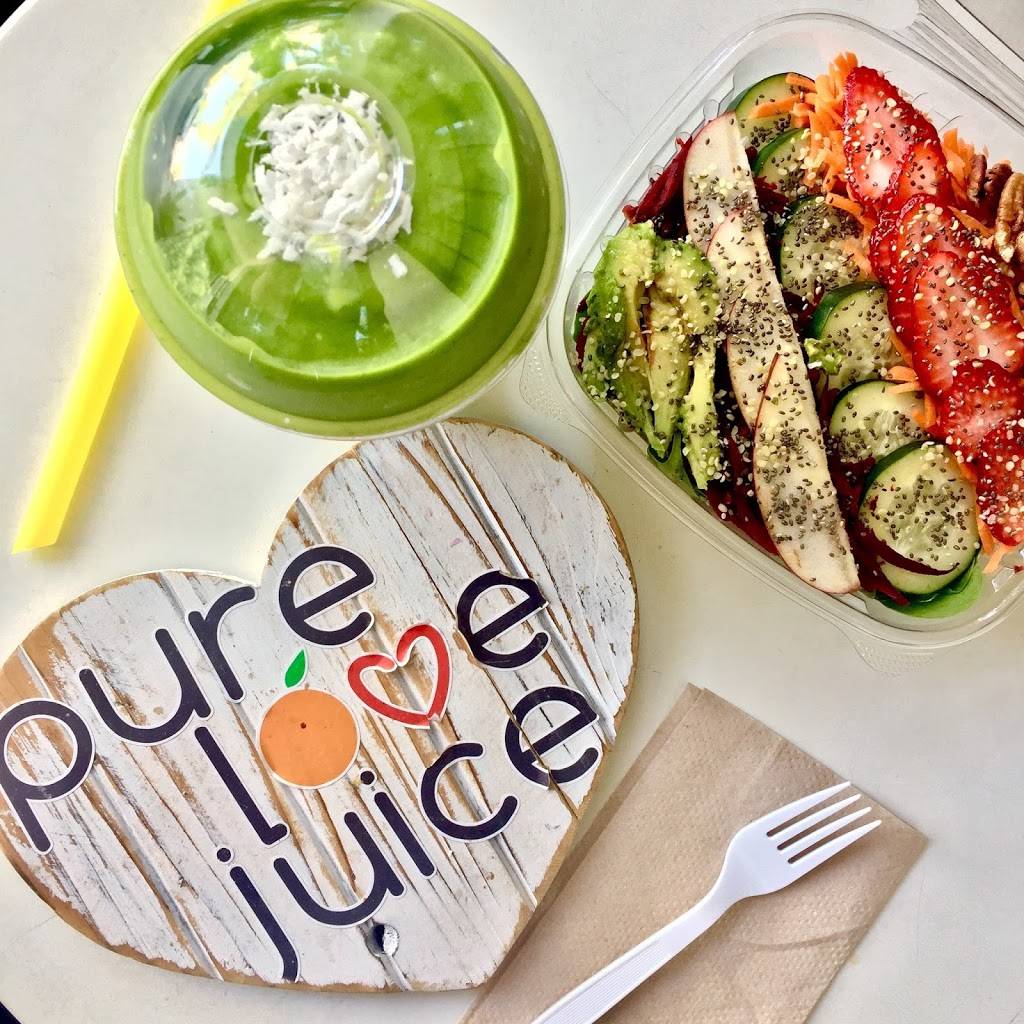 pure
love
juice